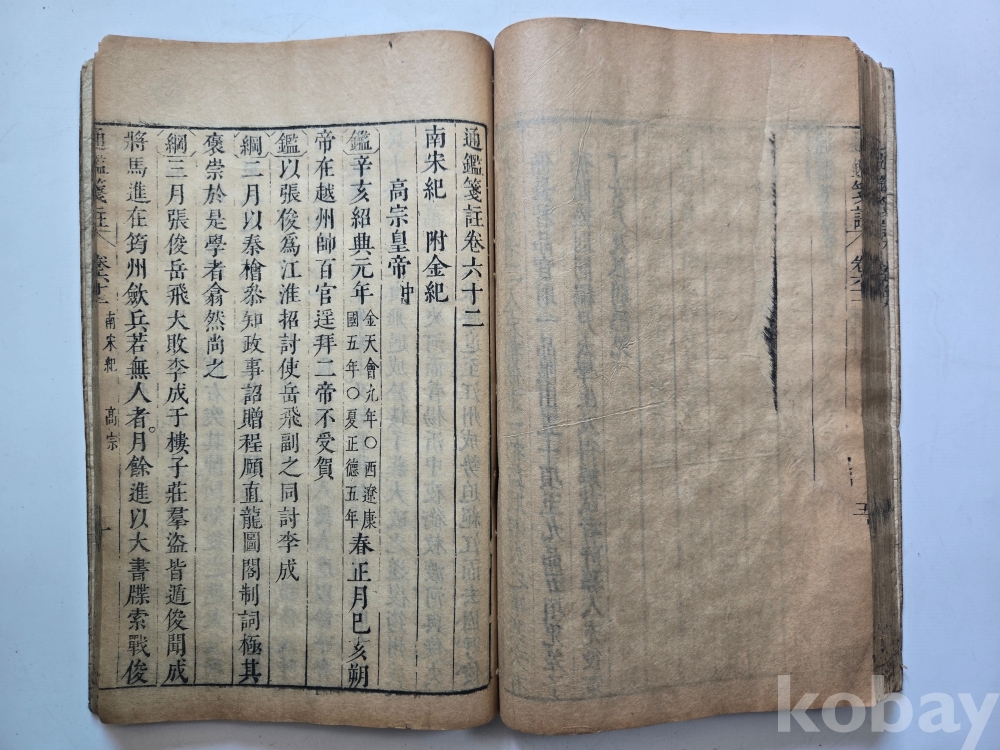 通鑑箋註卷六十二
南宋紀　附金紀
高宗皇帝中
鑑辛亥紹典元年金天會九年〇西遼康國五年〇夏正德五年春正月巳亥朔
帝在越州帥百官遥拜二帝不受賀
鑑以張俊爲江淮招討使岳飛副之同討李成
綱二月以秦檜叅知政事詔贈程頤直龍圖閣制詞極其
褒崇於是學者翕然尚之
綱三月張俊岳飛大敗李成于樓子莊羣盗皆遁俊聞成
將馬進在筠州歛兵若無人者。月餘進以大書牒索戰俊
通鑑箋註　卷六十二　南宋紀　高宗
kobay